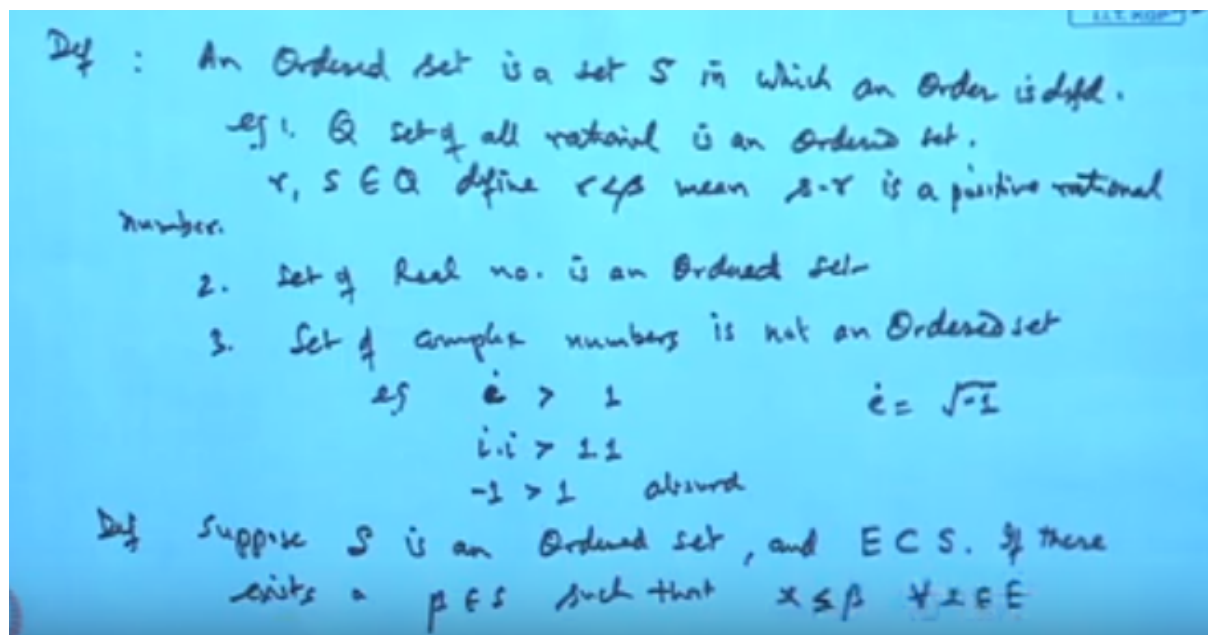 I.I.T. KGP
Def : An Ordered set is a set S in which an Order is defd.
eg 1. Q set of all rational is an Ordered set.
r, s ∈ Q define r < s mean s-r is a positive rational
number.
2. Set of Real no. is an Ordered set
3. Set of complex numbers is not an Ordered set
eg i > 1 i = √-1
i.i > 1.1
-1 > 1 absurd
Def Suppose S is an Ordered set, and E ⊂ S. If there
exists a β ∈ S such that x ≤ β ∀ x ∈ E